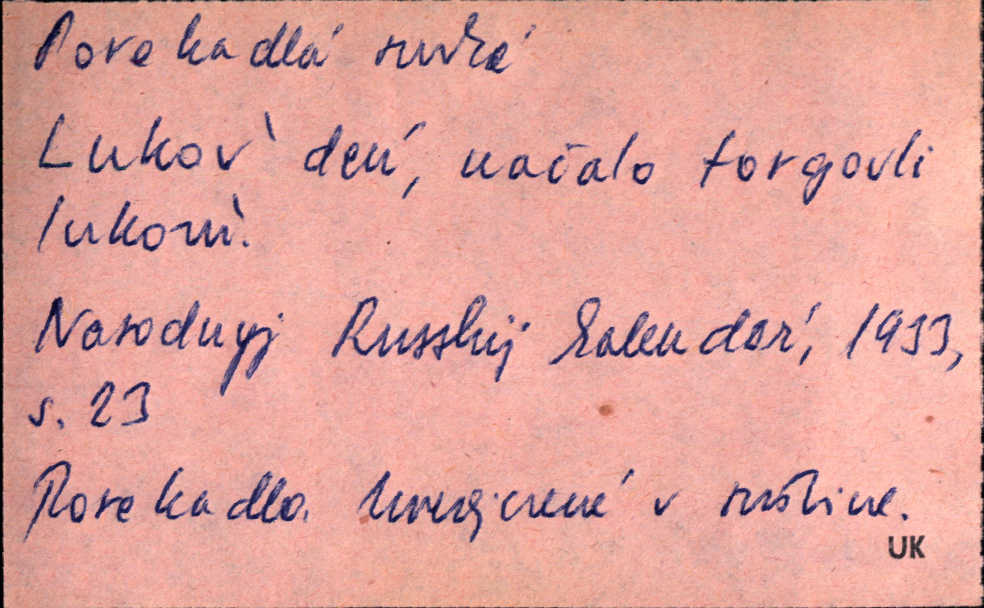 Porekadlá ruské
Lukov' deń, načalo torgovli
lukom'.
Narodnyj Russkij Kalendaŕ, 1933,
s. 23
Porekadlo. Uverejnené v ruštine.
UK